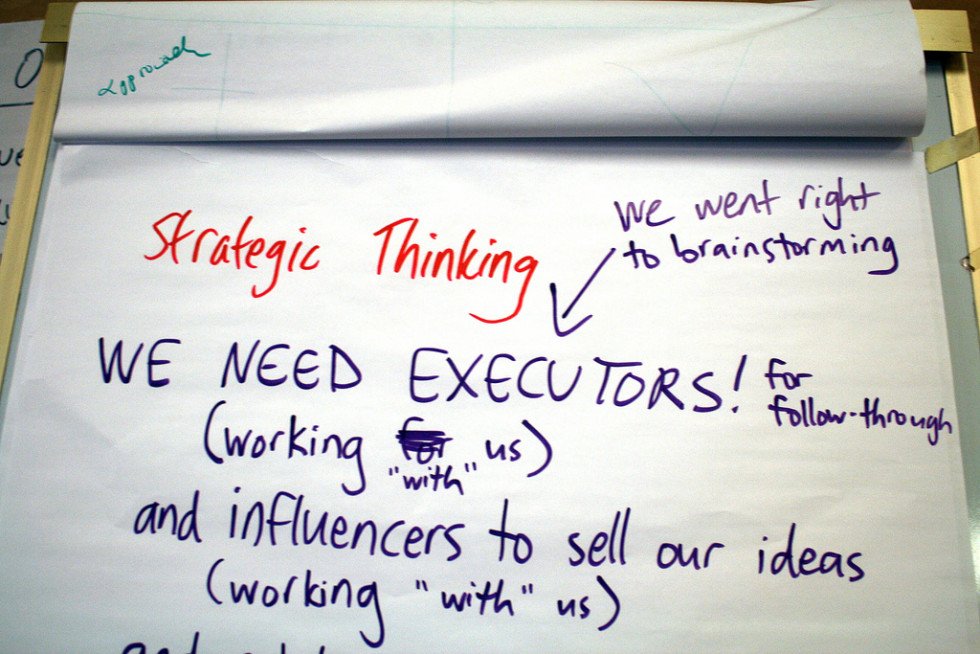 Approach
Strategic Thinking
we went right
to brainstorming
WE NEED EXECUTORS! for
follow-through
(working for us)
"with"
and influencers to sell our ideas
(working "with" us)
and